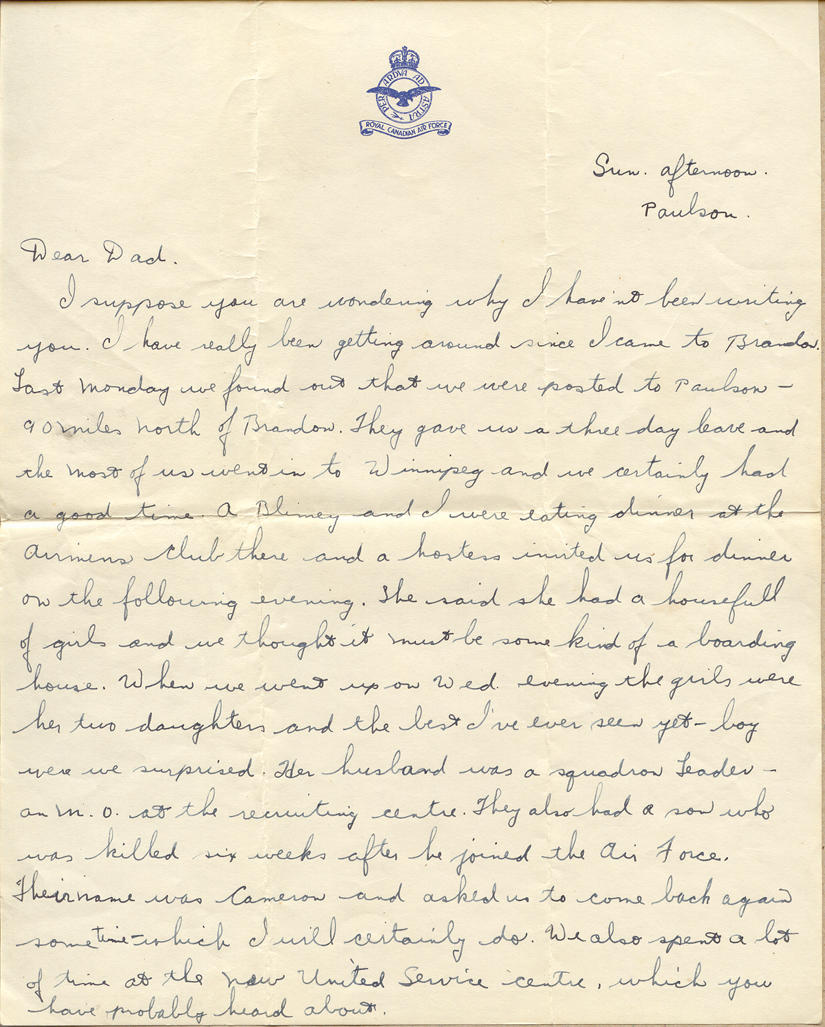 PER ARDVA AD ASTRA
ROYAL CANADIAN AIR FORCE
Sun. afternoon.
Paulson.
Dear Dad.
I suppose you are wondering why I have'nt been writing
you. I have really been getting around since I came to Brandon.
Last Monday we found out that we were posted to Paulson -
90 miles north of Brandon. They gave us a three day leave and
the most of us went in to Winnipeg and we certainly had
a good time. A Blimey and I were eating dinner at the
Airmens Club there and a hostess invited us for dinner
on the following evening. She said she had a housefull
of girls and we thought it must be some kind of a boarding
house. When we went up on Wed. evening the girls were
her two daughters and the best I've ever seen yet - boy
were we surprised. Her husband was a squadron Leader -
an M. O. at the recruiting centre. They also had a son who
was killed six weeks after he joined the Air Force.
Their name was Cameron and asked us to come back again
some time - which I will certainly do. We also spent a lot
of time at the new United Service centre, which you
have probably heard about.